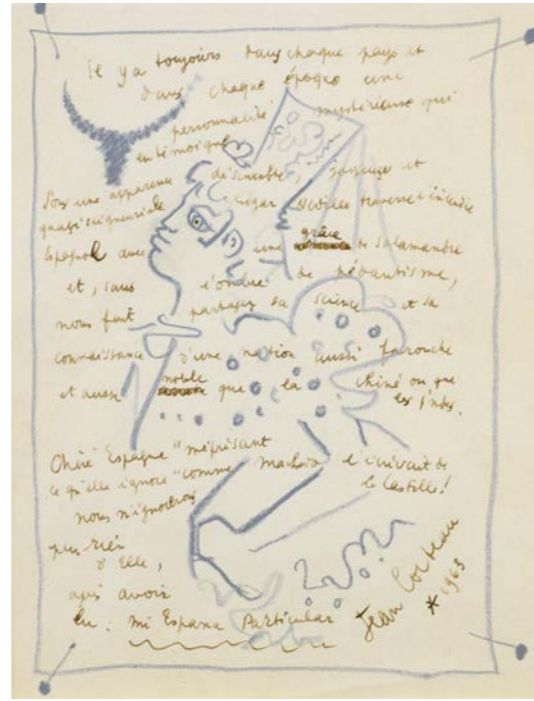 Il y a toujours dans chaque pays et
dans chaque époque une
personnalité mystérieuse qui
en témoigne.
Sous une apparence désinvolte, joyeuse et
quasi seigneuriale Edgar Neville traverse l'incendie
Espagnol avec une grâce de salamandre
et, sans l'ombre de pédantisme,
nous fait partager sa science et sa
connaissance d'une nation aussi farouche
et aussi noble que la Chine ou que
les Indes.
Chère Espagne "méprisant
ce qu'elle ignore" comme Machado l'écrivait de
la Castille!
nous n'ignorons
plus rien
d'Elle,
après avoir
lu. Mi Espana Particular
Jean Cocteau
* 1963